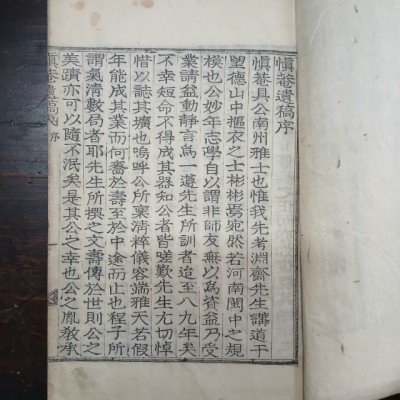 愼菴遺稿序
愼菴具公南州雅士也惟我先考淵齋先生講道于
望德山中摳衣之士彬彬焉宛然若河南閩中之規
模也公妙年志學自以謂非師友無以爲資益乃受
業請益動靜言爲一遵先生所訓者迨至八九年矣
不幸短命不得成其器知公者皆嗟歎先生尤切悼
惜以誌其壙也嗚呼公所稟清粹儀容端雅天若假
年能成其業而何嗇於壽至於中途而止也程子所
謂氣清數局者耶先生所撰之文壽傳於世則公之
美蹟亦可以隨不泯矣是其公之幸也公之胤敎承
愼菴遺稿 序 一